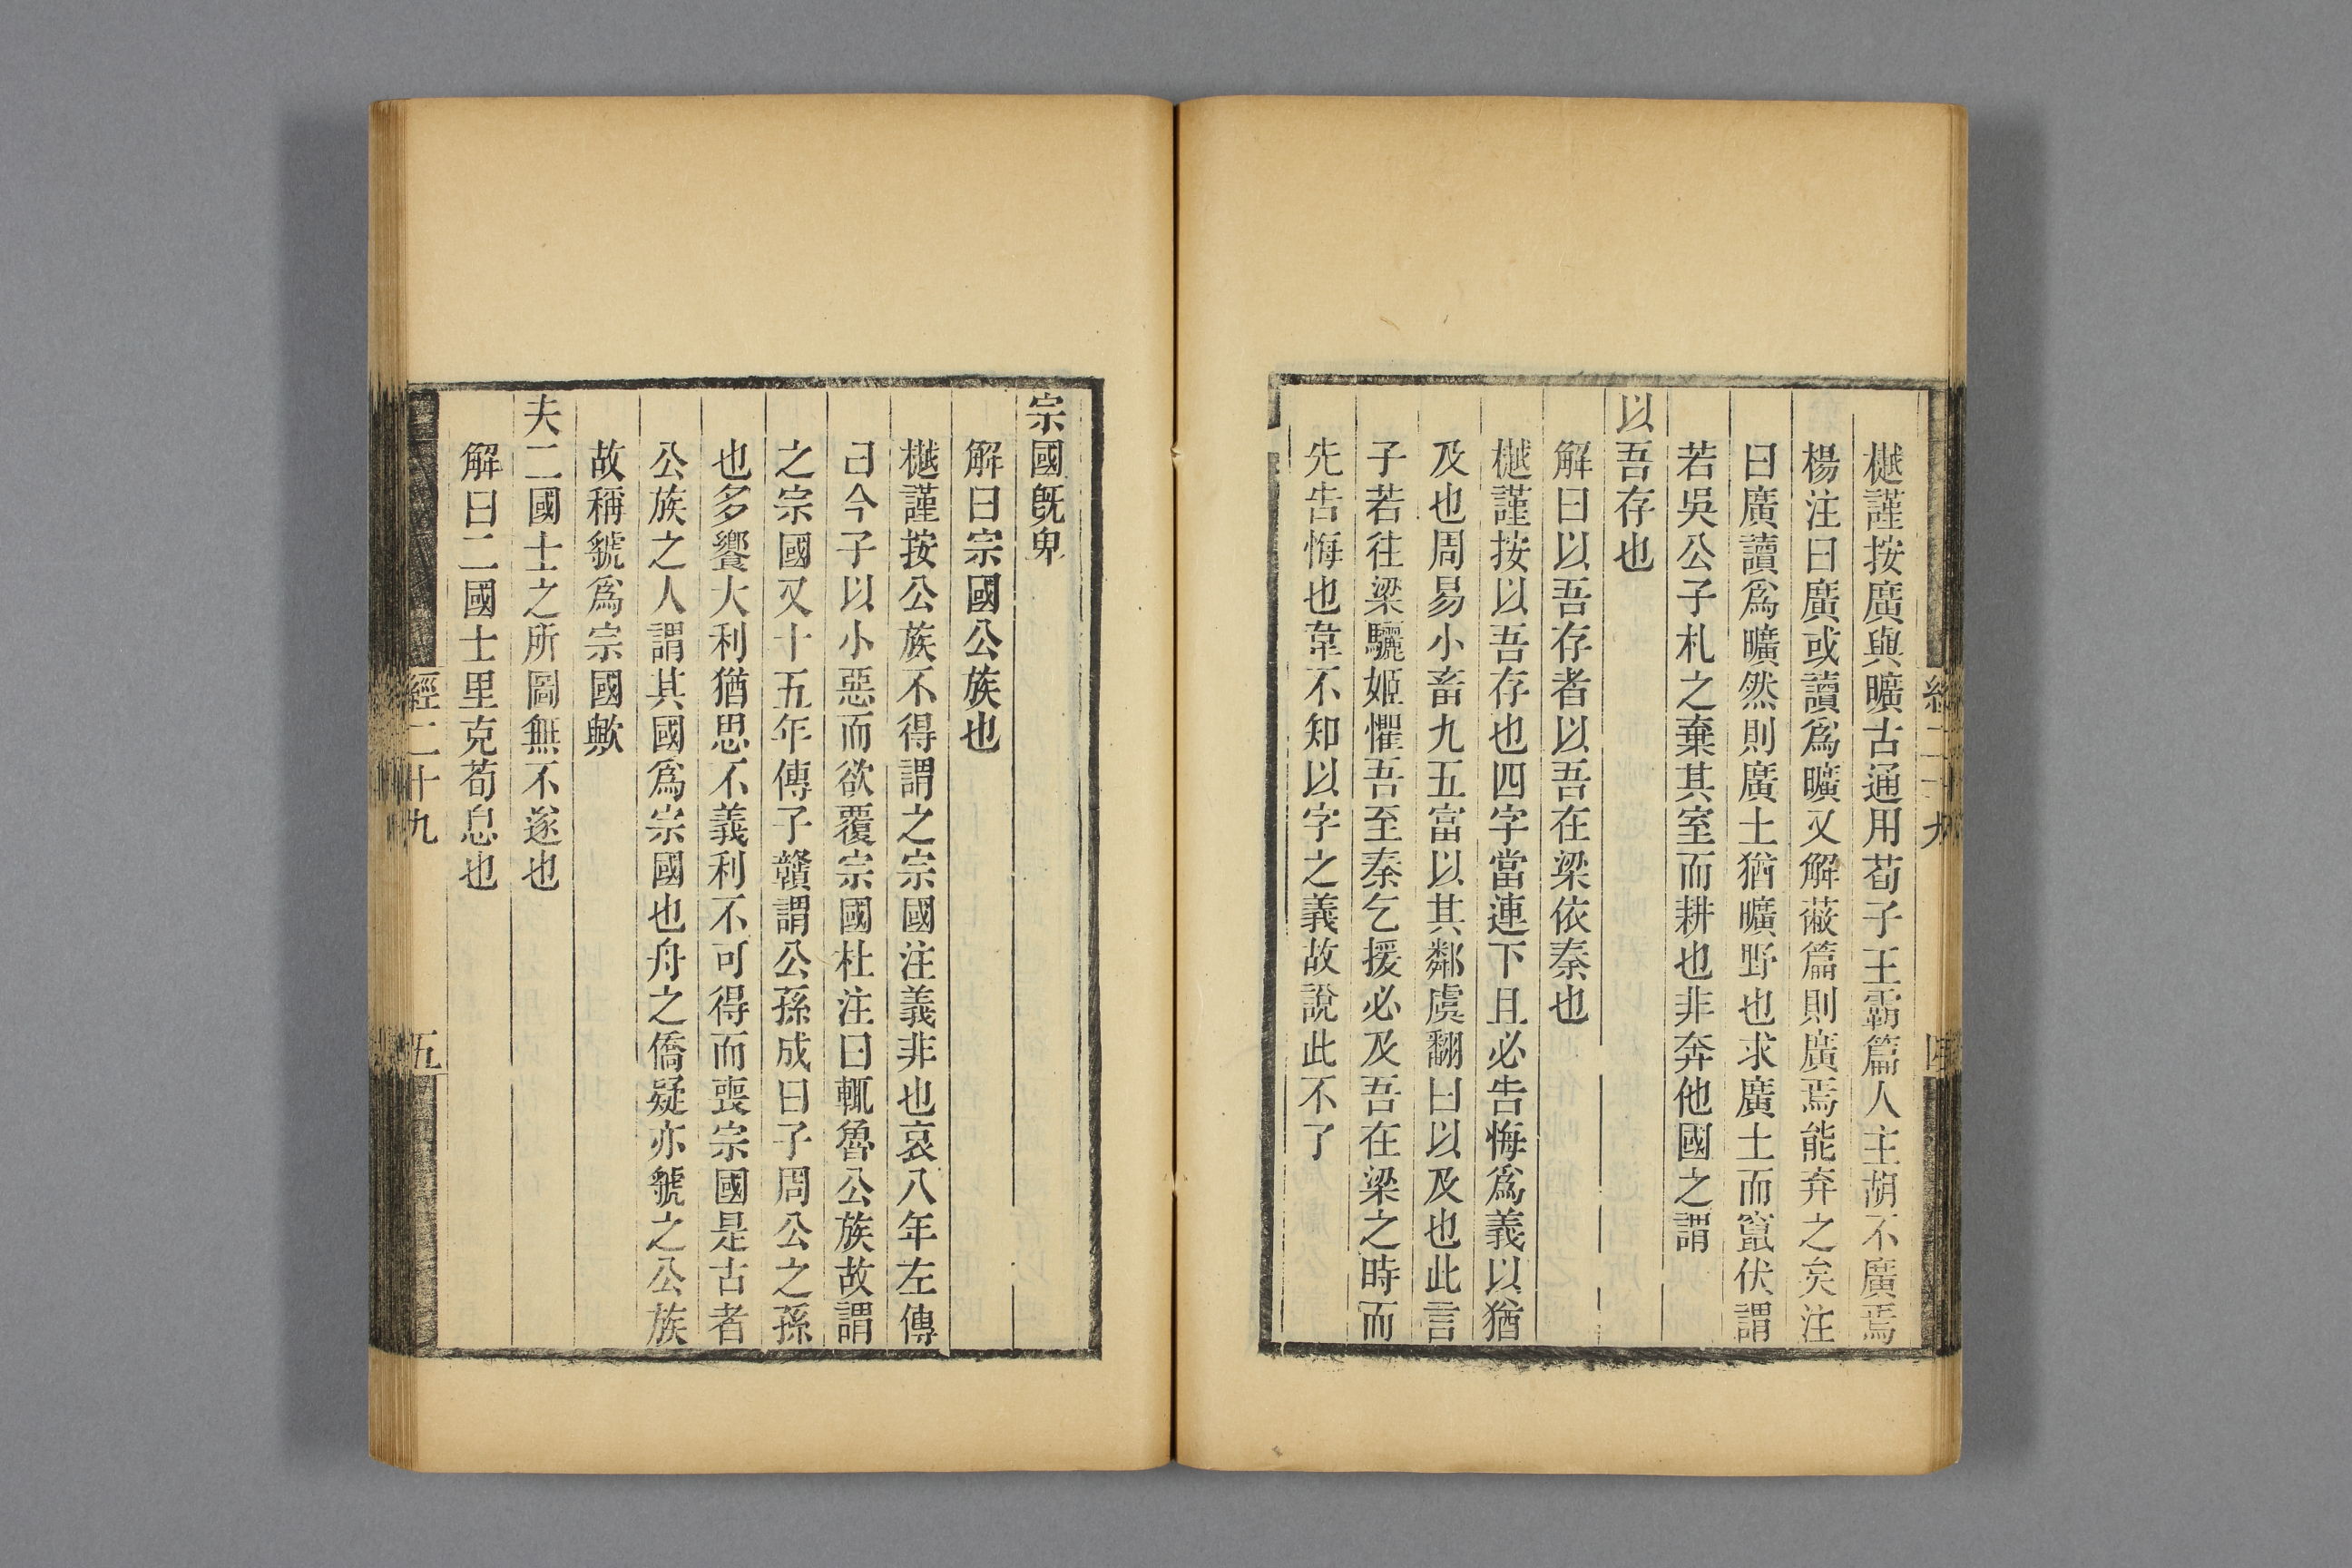 樾謹按廣與曠古通用荀子王霸篇人主胡不廣焉
楊注曰廣或讀爲曠又解蔽篇則廣焉能弃之矣注
曰廣讀爲曠然則廣土猶曠野也求廣土而竄伏謂
若吳公子札之棄其室而耕也非奔他國之謂
以吾存也
解曰以吾存者以吾在梁依秦也
樾謹按以吾存也四字當連下且必告悔爲義以猶
及也周易小畜九五富以其鄰虞翻曰以及也此言
子若往梁驪姬懼吾至秦乞援必及吾在梁之時而
先告悔也韋不知以字之義故說此不了
宗國旣卑
解曰宗國公族也
樾謹按公族不得謂之宗國注義非也哀八年左傳
曰今子以小惡而欲覆宗國杜注曰輒魯公族故謂
之宗國又十五年傳子贛謂公孫成曰子周公之孫
也多饗大利猶思不義利不可得而喪宗國是古者
公族之人謂其國爲宗國也舟之僑疑亦虢之公族
故稱虢爲宗國歟
夫二國士之所圖無不遂也
解曰二國士里克荀息也
經二十九
五